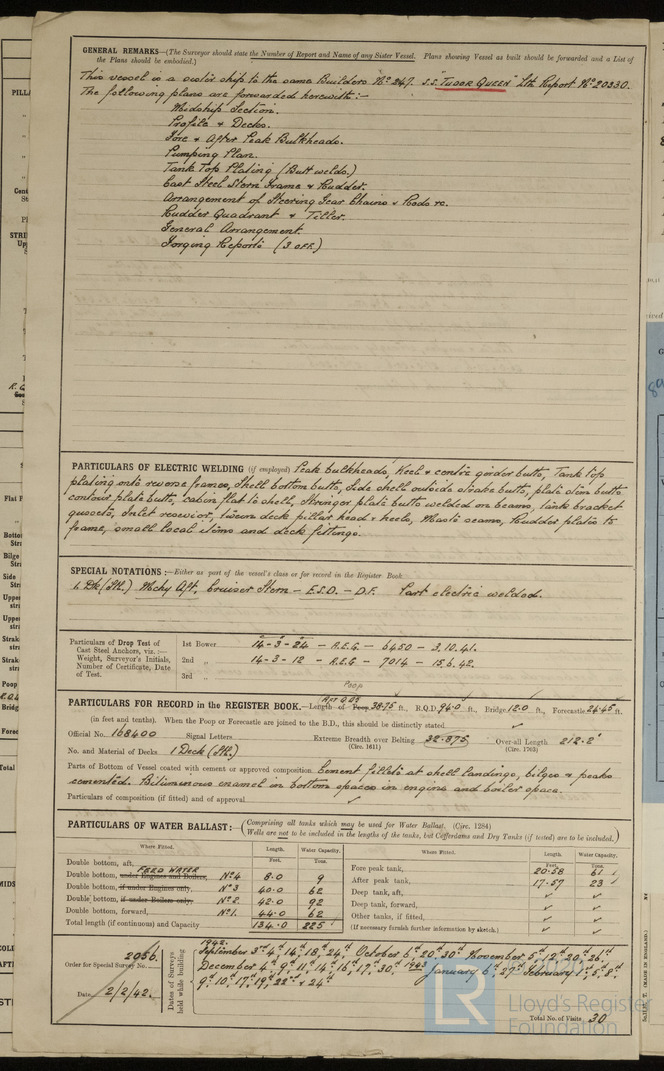 GENERAL REMARKS—(The Surveyor should state the Number of Report and Name of any Sister Vessel. Plans showing Vessel as built should be forwarded and a List of
the Plans should be embodied.)
This vessel is a sister ship to the same Builders No 247. S.S. "TUDOR QUEEN" Lth Report No 20330.
The following plans are forwarded herewith:-
Midship Section.
Profile & Decks.
Fore & After Peak Bulkheads.
Pumping Plan.
Tank Top Plating (Butt welds.)
Cast Steel Stern Frame & Rudder.
Arrangement of Steering Gear Chains & Rods rc.
Rudder Quadrant & Tiller.
General Arrangement.
Forging Reports (3 OFF.)
PARTICULARS OF ELECTRIC WELDING (if employed) Peak bulkheads, Keel & centre girder butts, Tank top
plating onto reverse frames, Shell bottom butts, Side shell outside strake butts, plate stem butts
contour plate butts, cabin flat to shell, Stringer plate butts welded on beams, tank bracket
gussets, Inlet reservior, tween deck pillar head & heels, Masts seams, Rudder plates to
frame, small local items and deck fittings.
SPECIAL NOTATIONS:—Either as part of the vessel's class or for record in the Register Book
1. Dk (Stl.) Mchy Aft. Cruiser Stern - E.S.D. - D.F. Part electric welded.
Particulars of Drop Test of
Cast Steel Anchors, viz.:—
Weight, Surveyor's Initials,
Number of Certificate, Date
of Test.
1st Bower 14-3-24 - R.E.G. - 6450 - 3.10.41.
2nd „ 14-3-12 - R.E.G - 7014 - 15.6.42.
3rd „
Poop
PARTICULARS FOR RECORD in the REGISTER BOOK.—Length of Poop 38.75 ft., R.Q.D. 94.0 ft., Bridge 12.0 ft., Forecastle 24.45 ft.
(in feet and tenths). When the Poop or Forecastle are joined to the B.D., this should be distinctly stated
Official No. 168400 Signal Letters Extreme Breadth over Belting 32.875 Over-all Length 212.2'
(Circ. 1611) (Circ. 1703)
No. and Material of Decks 1 Deck (Stl.)
Parts of Bottom of Vessel coated with cement or approved composition Cement fillets at shell landings, bilges & peaks
cemented. Bituminous enamel in bottom spaces in engine and boiler space.
Particulars of composition (if fitted) and of approval ✓
PARTICULARS OF WATER BALLAST:—(Comprising all tanks which may be used for Water Ballast. (Circ. 1284)
Wells are not to be included in the lengths of the tanks, but Cofferdams and Dry Tanks (if tested) are to be included.)
Where Fitted. Length. Water Capacity. Where Fitted. Length. Water Capacity.
Feet. Tons. Feet. Tons.
Double bottom, aft,
FEED WATER
Double bottom, under Engines and Boilers, No 4 8.0 9
Double bottom, if under Engines only, No 3 40.0 62
Double bottom, if under Boilers only, No 2. 42.0 92
Double bottom, forward, No 1. 44.0 62
Total length (if continuous) and Capacity 134.0 225
Fore peak tank, 20.58 61
After peak tank, 17.57 23
Deep tank, aft, ✓ ✓
Deep tank, forward, ✓ ✓
Other tanks, if fitted, ✓ ✓
(If necessary furnish further information by sketch.)
Order for Special Survey No. 2066.
Date 2/2/42.
Dates of Surveys
held while building
1942.
September 3rd 4, 14, 18, 24, October 6, 20, 30th November 5, 12, 20, 26th
December 4, 9, 11, 14, 16, 17, 30th 1943 January 6th, 27th February 1st, 5, 8th
9th 10th 17th 19th 22nd & 24th
Total No. of Visits 30
LR
Lloyd's Register
Foundation